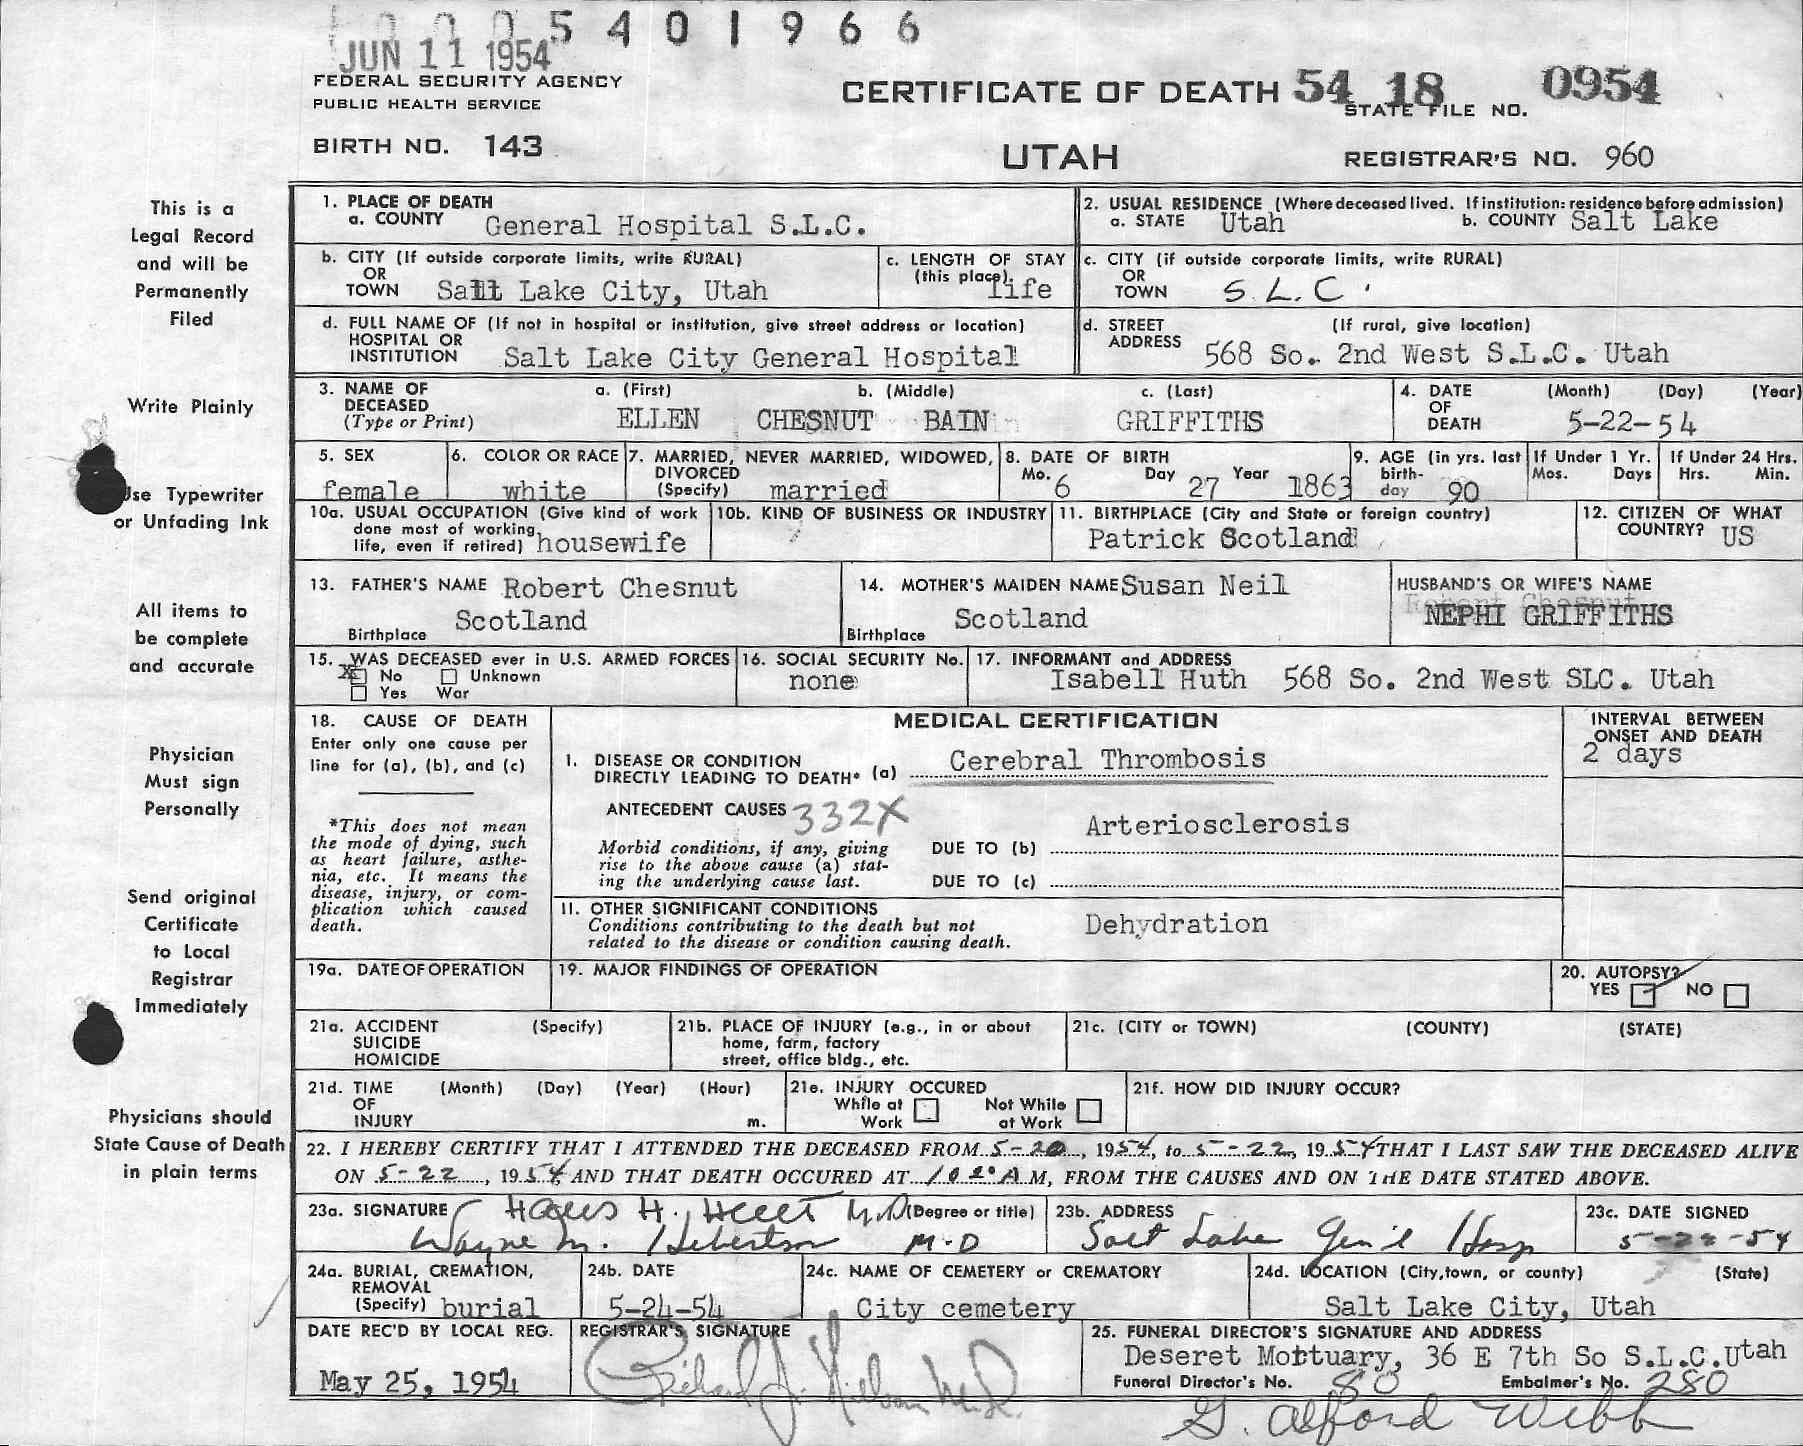 0005401966
JUN 11 1954
FEDERAL SECURITY AGENCY
PUBLIC HEALTH SERVICE
CERTIFICATE OF DEATH 54 18 0954
STATE FILE NO.
BIRTH NO. 143
UTAH
REGISTRAR'S NO. 960
This is a
Legal Record
and will be
Permanently
Filed
Write Plainly
Use Typewriter
or Unfading Ink
All items to
be complete
and accurate
Physician
Must sign
Personally
Send original
Certificate
to Local
Registrar
Immediately
Physicians should
State Cause of Death
in plain terms
1. PLACE OF DEATH
a. COUNTY General Hospital S.L.C.
2. USUAL RESIDENCE (Where deceased lived. If institution: residence before admission)
a. STATE Utah b. COUNTY Salt Lake
b. CITY (If outside corporate limits, write RURAL)
OR
TOWN Salt Lake City, Utah
c. LENGTH OF STAY
(this place) life
c. CITY (if outside corporate limits, write RURAL)
OR
TOWN S.L.C.
d. FULL NAME OF (If not in hospital or institution, give street address or location)
HOSPITAL OR
INSTITUTION Salt Lake City General Hospital
d. STREET (If rural, give location)
ADDRESS 568 So. 2nd West S.L.C. Utah
3. NAME OF a. (First) b. (Middle) c. (Last)
DECEASED
(Type or Print) ELLEN CHESNUT BAIN GRIFFITHS
4. DATE (Month) (Day) (Year)
OF
DEATH 5-22-54
5. SEX
female
6. COLOR OR RACE
white
7. MARRIED, NEVER MARRIED, WIDOWED,
DIVORCED
(Specify) married
8. DATE OF BIRTH
Mo. 6 Day 27 Year 1863
9. AGE (in yrs. last
birth-
day 90
If Under 1 Yr.
Mos. Days
If Under 24 Hrs.
Hrs. Min.
10a. USUAL OCCUPATION (Give kind of work
done most of working
life, even if retired) housewife
10b. KIND OF BUSINESS OR INDUSTRY
11. BIRTHPLACE (City and State or foreign country)
Patrick Scotland
12. CITIZEN OF WHAT
COUNTRY? US
13. FATHER'S NAME Robert Chesnut
Birthplace Scotland
14. MOTHER'S MAIDEN NAME Susan Neil
Birthplace Scotland
HUSBAND'S OR WIFE'S NAME
NEPHI GRIFFITHS
15. WAS DECEASED ever in U.S. ARMED FORCES
X No Unknown
Yes War
16. SOCIAL SECURITY No.
none
17. INFORMANT and ADDRESS
Isabell Huth 568 So. 2nd West SLC. Utah
18. CAUSE OF DEATH
Enter only one cause per
line for (a), (b), and (c)
*This does not mean
the mode of dying, such
as heart failure, asthe-
nia, etc. It means the
disease, injury, or com-
plication which caused
death.
MEDICAL CERTIFICATION
INTERVAL BETWEEN
ONSET AND DEATH
2 days
I. DISEASE OR CONDITION
DIRECTLY LEADING TO DEATH* (a) Cerebral Thrombosis
ANTECEDENT CAUSES 332X
Morbid conditions, if any, giving
rise to the above cause (a) stat-
ing the underlying cause last.
DUE TO (b) Arteriosclerosis
DUE TO (c)
II. OTHER SIGNIFICANT CONDITIONS
Conditions contributing to the death but not
related to the disease or condition causing death.
Dehydration
19a. DATE OF OPERATION
19. MAJOR FINDINGS OF OPERATION
20. AUTOPSY?
YES NO
21a. ACCIDENT (Specify)
SUICIDE
HOMICIDE
21b. PLACE OF INJURY (e.g., in or about
home, farm, factory
street, office bldg., etc.
21c. (CITY or TOWN) (COUNTY) (STATE)
21d. TIME (Month) (Day) (Year) (Hour)
OF
INJURY m.
21e. INJURY OCCURED
While at Work Not While at Work
21f. HOW DID INJURY OCCUR?
22. I HEREBY CERTIFY THAT I ATTENDED THE DECEASED FROM 5-20, 1954, to 5-22, 1954 THAT I LAST SAW THE DECEASED ALIVE
ON 5-22, 1954 AND THAT DEATH OCCURED AT A M, FROM THE CAUSES AND ON THE DATE STATED ABOVE.
23a. SIGNATURE H. M.D (Degree or title)
Wayne M. Hebertson M.D
23b. ADDRESS
Salt Lake Gen'l Hosp
23c. DATE SIGNED
24a. BURIAL, CREMATION,
REMOVAL
(Specify) burial
24b. DATE
5-24-54
24c. NAME OF CEMETERY or CREMATORY
City cemetery
24d. LOCATION (City, town, or county) (State)
Salt Lake City, Utah
DATE REC'D BY LOCAL REG.
May 25, 1954
REGISTRAR'S SIGNATURE
Richard
25. FUNERAL DIRECTOR'S SIGNATURE AND ADDRESS
Deseret Mortuary, 36 E 7th So S.L.C. Utah
Funeral Director's No. 80 Embalmer's No. 280
G. Alford Webb